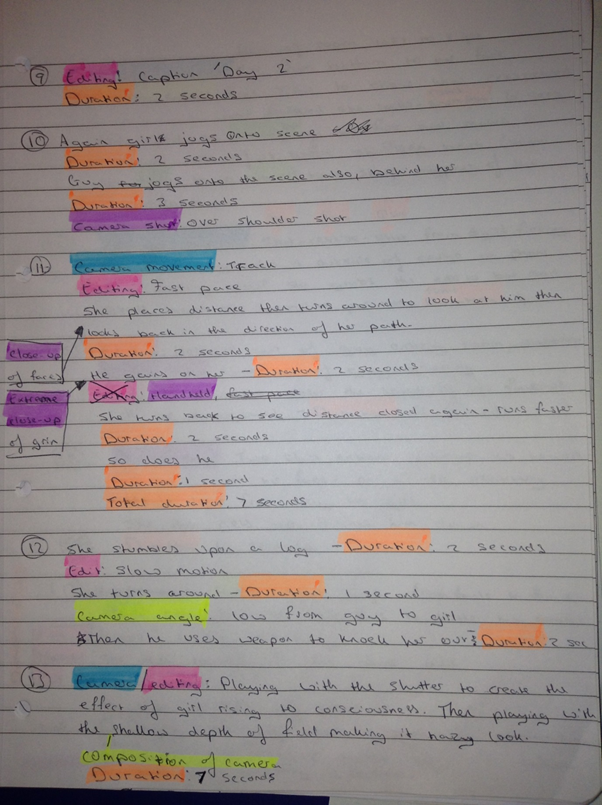 9 Editing: Caption 'Day 2'
Duration: 2 seconds
10 Again girl jogs onto scene
Duration: 2 seconds
Guy jogs onto the scene also, behind her
Duration: 3 seconds
Camera shot: over shoulder shot
11 Camera movement: Track
Editing: Fast pace
She places distance then turns around to look at him then
looks back in the direction of her path.
Close-up
of faces
Duration: 2 seconds
He gains on her - Duration: 2 seconds
Extreme
close-up
of grin
Editing: Handheld, fast pace
She turns back to see distance closed again - runs faster
Duration: 2 seconds
so does he
Duration: 1 second
Total duration: 7 seconds
12 She stumbles upon a log - Duration: 2 seconds
Edit: Slow motion
She turns around - Duration: 1 second
Camera angle: low from guy to girl
Then he uses weapon to knock her out: Duration 2 sec
13 Camera/editing: Playing with the shutter to create the
effect of girl rising to consciousness. Then playing with
the shallow depth of field making it hazy look.
Composition of camera
Duration: 7 seconds